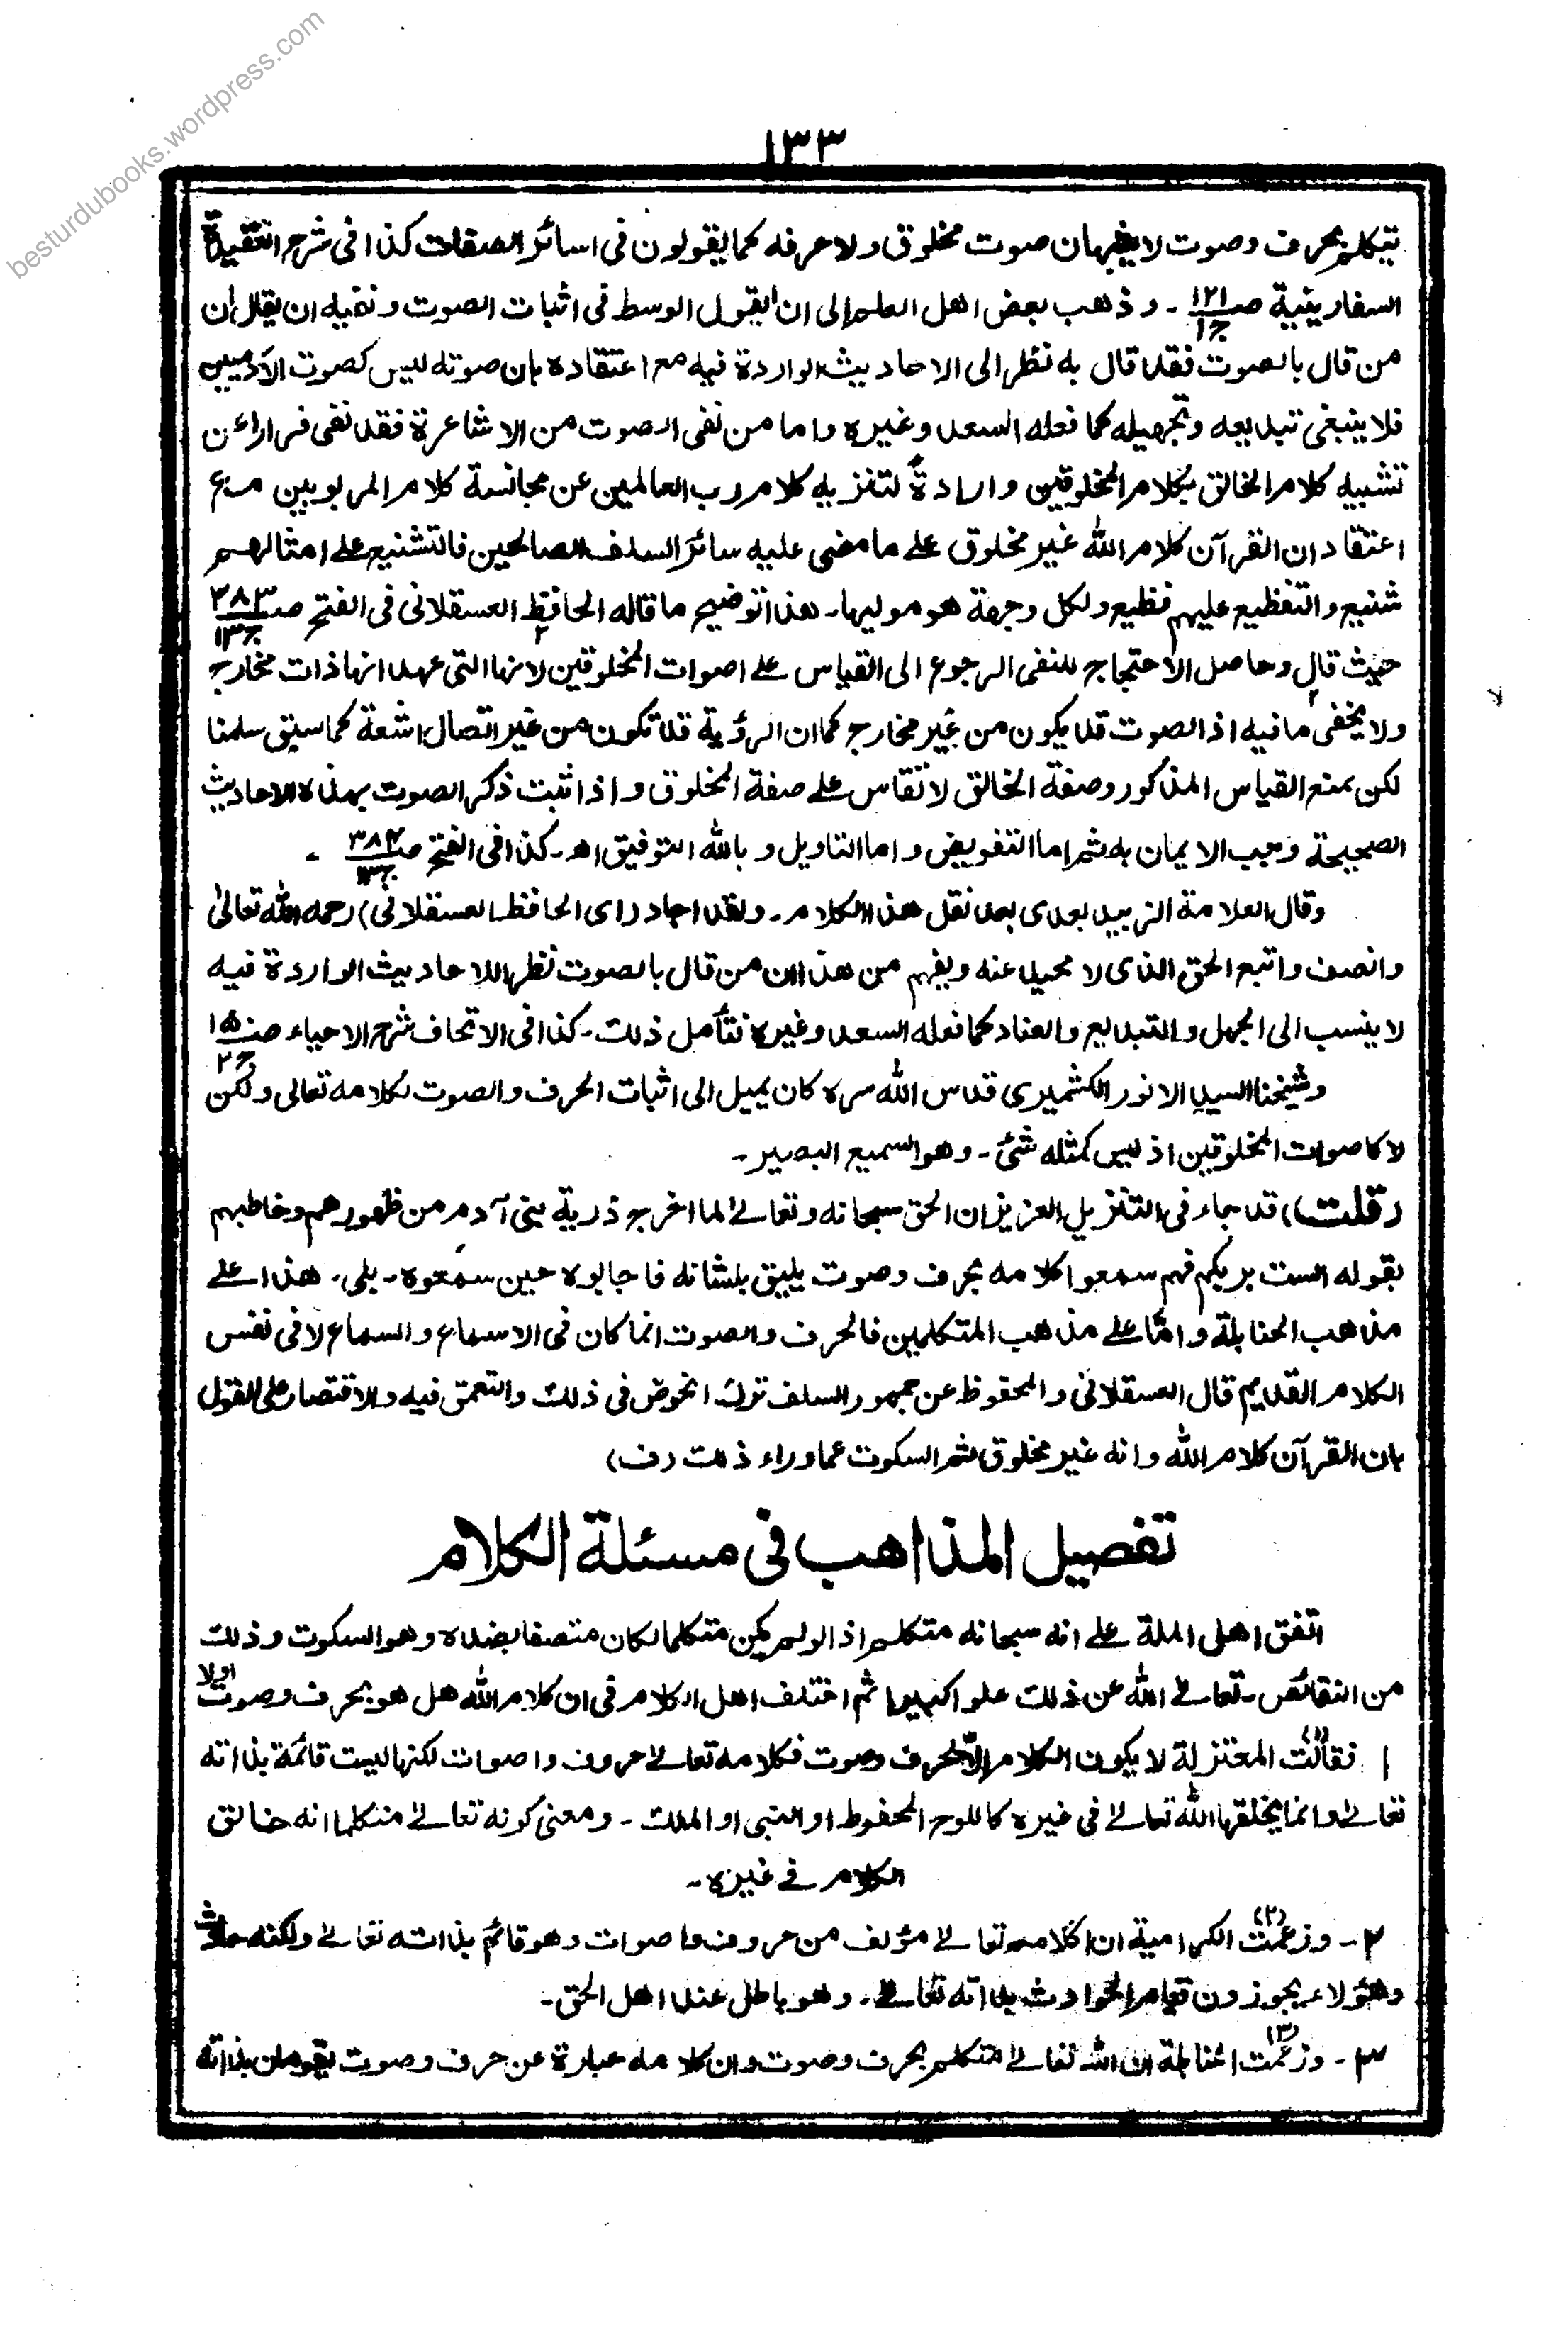 besturdubooks.wordpress.com
١٣٣
يتكلم بحرف وصوت لا يشبهان صوت مخلوق ولا حرفه كما يقولون فى سائر الصفات كذا فى شرح العقيدة
السفارينية صـ١٢١ ج١ ـ وذهب بعض اهل العلم الى ان القول الوسط فى اثبات الصوت ونفيه ان يقال ان
من قال بالصوت فقد قال به نظر الى الاحاديث الواردة فيه مع اعتقاده بان صوته ليس كصوت الآدميين
فلا ينبغى تبديعه وتجهيله كما فعله السعد وغيره واما من نفى الصوت من الاشاعرة فقد نفى فرارا عن
تشبيه كلام الخالق بكلام المخلوقين وارادةً لتنزيه كلام رب العالمين عن مجانسة كلام المربوبين مع
اعتقاد ان القرآن كلام الله غير مخلوق على ما مضى عليه سائر السلف الصالحين فالتشنيع على امثالهم
شنيع والتفظيع عليهم فظيع ولكل وجهة هو موليها ـ هذا توضيح ما قاله الحافظ العسقلانى فى الفتح صـ٣٨٣ ج١٣
حيث قال وحاصل الاحتجاج للنفى الرجوع الى القياس على اصوات المخلوقين لانها التى عهد انها ذات مخارج
ولا يخفى ما فيه اذ الصوت قد يكون من غير مخارج كما ان الرؤية قد تكون من غير اتصال اشعة كما سبق سلمنا
لكن بمنع القياس المذكور وصفة الخالق لا تقاس على صفة المخلوق واذا ثبت ذكر الصوت بهذه الاحاديث
الصحيحة وجب الايمان به ثم اما التفويض واما التاويل وبالله التوفيق اهـ ـ كذا فى الفتح صـ٣٨٤ ج١٣ ـ
وقال العلامة الزبيدى بعد نقل هذا الكلام ـ ولقد اجاد (اى الحافظ العسقلانى) رحمه الله تعالىٰ
وانصف واتبع الحق الذى لا محيد عنه ويفهم من هذا ان من قال بالصوت نظرا للاحاديث الواردة فيه
لا ينسب الى الجهل والتبديع والعناد كما فعله السعد وغيره فتأمل ذلك ـ كذا فى الاتحاف شرح الاحياء صـ١٥ ج٢
وشيخنا السيد الانور الكشميرى قدس الله سره كان يميل الى اثبات الحرف والصوت لكلامه تعالى ولكن
لا كاصوات المخلوقين اذ ليس كمثله شئ ـ وهو السميع البصير ـ
(قلت) قد جاء فى التنزيل العزيز ان الحق سبحانه وتعالىٰ لما اخرج ذرية بنى آدم من ظهورهم وخاطبهم
بقوله الست بربكم فهم سمعوا كلامه بحرف وصوت يليق بلشانه فاجابوه حين سمعوه ـ بلى ـ هذا على
مذهب الحنابلة وامّا على مذهب المتكلمين فالحرف والصوت انما كان فى الاسماع والسماع لا فى نفس
الكلام القديم قال العسقلانى والمحفوظ عن جمهور السلف ترك الخوض فى ذلك والتعمق فيه والاقتصار على القول
بان القرآن كلام الله وانه غير مخلوق ثم السكوت عما وراء ذلك (ف)
تفصيل المذاهب فى مسئلة الكلام
اتفق اهل الملة على انه سبحانه متكلم اذ لو لم يكن متكلما لكان متصفا بضده وهو السكوت وذلك
من النقائص ـ تعالىٰ الله عن ذلك علوا كبيرا ثم اختلف اهل الكلام فى ان كلام الله هل هو بحرف وصوت او لا
١ فقالت (١) المعتزلة لا يكون الكلام الّا بحرف وصوت فكلامه تعالىٰ حروف واصوات لكنها ليست قائمة بذاته
تعالىٰ وانما يخلقها الله تعالىٰ فى غيره كاللوح المحفوظ او النبى او الملك ـ ومعنى كونه تعالىٰ متكلما انه خالق
الكلام فى غيره ـ
٢ ـ وزعمت (٢) الكرامية ان كلامه تعالىٰ مؤلف من حروف واصوات وهو قائم بذاته تعالىٰ ولكنه حادث
وهؤلاء يجوزون قيام الحوادث بذاته تعالىٰ ـ وهو باطل عند اهل الحق ـ
٣ ـ وزعمت (٣) الحنابلة ان الله تعالىٰ متكلم بحرف وصوت وان كلامه عبارة عن حرف وصوت يقومان بذاته